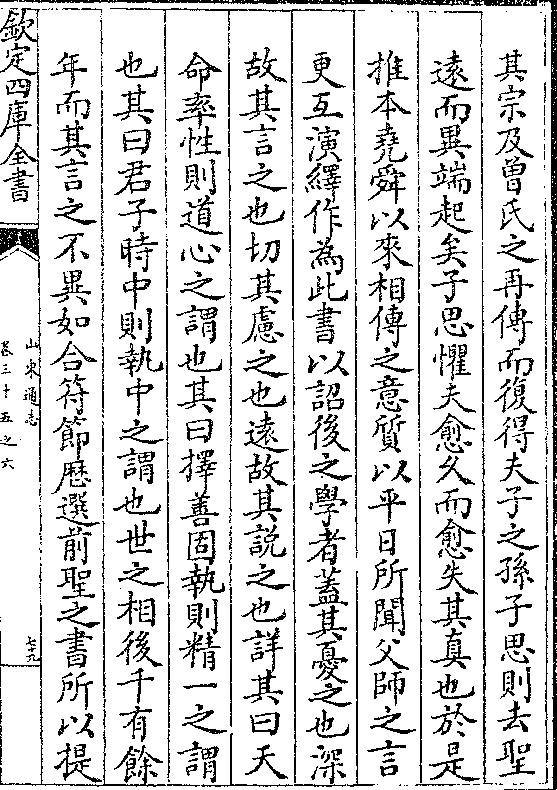 其宗及曾氏之再傳而復得夫子之孫子思則去聖
遠而異端起矣子思懼夫愈久而愈失其真也於是
推本堯舜以來相傳之意質以平日所聞父師之言
更互演繹作為此書以詔後之學者蓋其憂之也深
故其言之也切其慮之也遠故其説之也詳其曰天
命率性則道心之謂也其曰擇善固執則精一之謂
也其曰君子時中則執中之謂也世之相後千有餘
年而其言之不異如合符節歴選前聖之書所以提
欽定四庫全書
山東通志
卷三十五之六
七十九